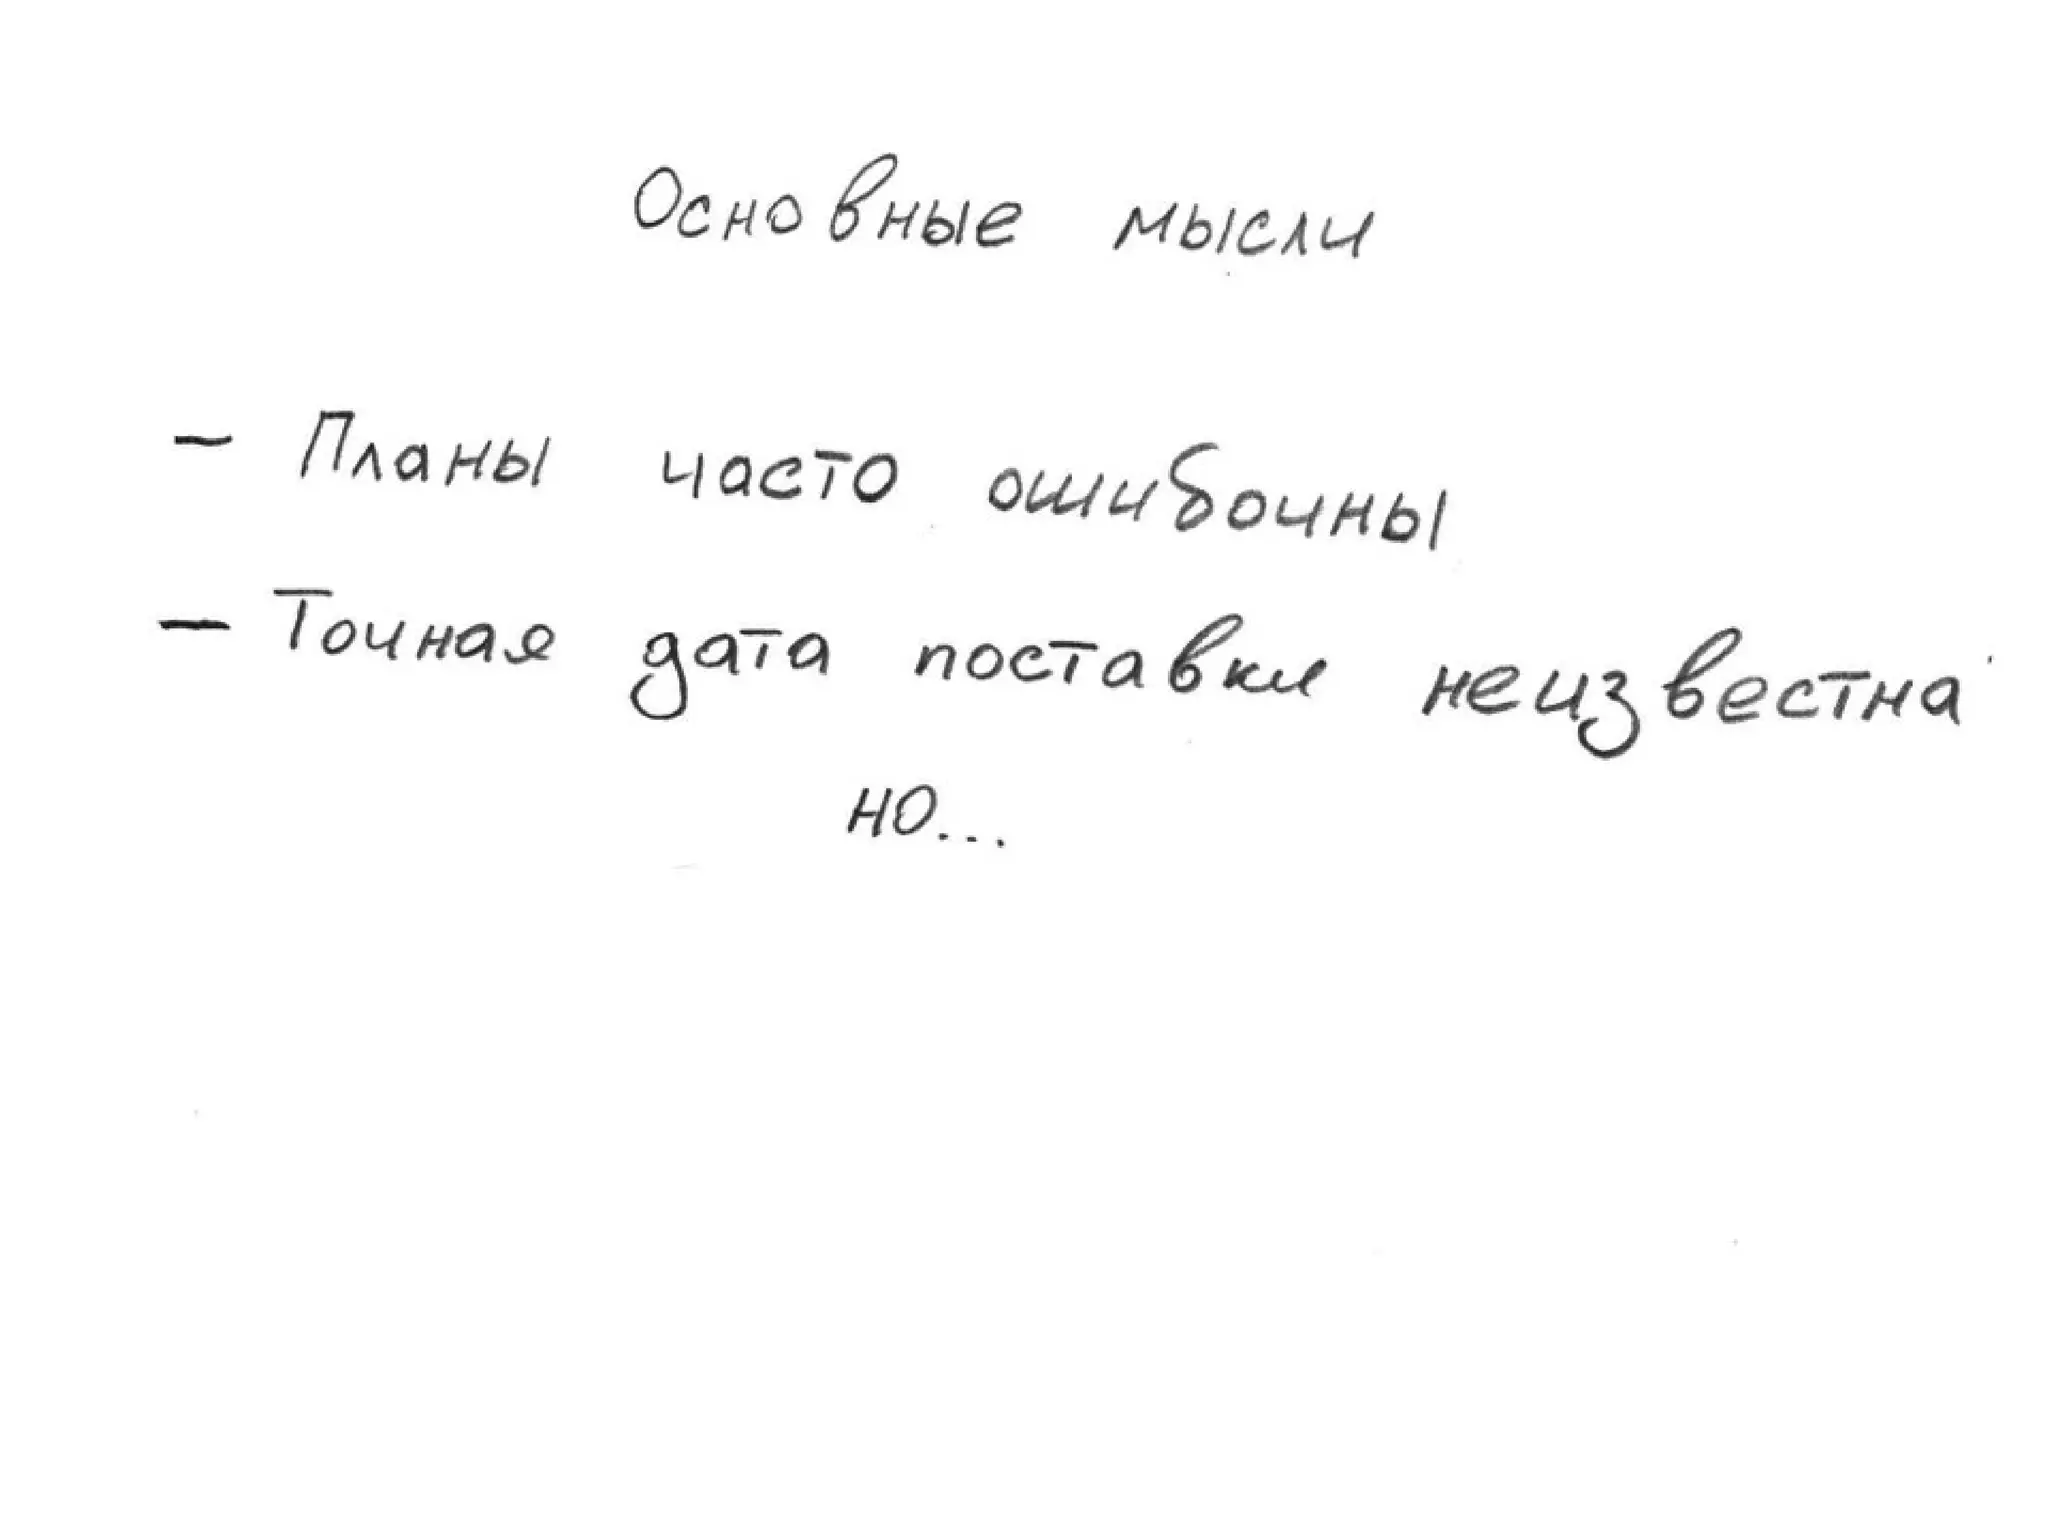 Основные мысли
- Планы часто ошибочны
- Точная дата поставки неизвестна
но...